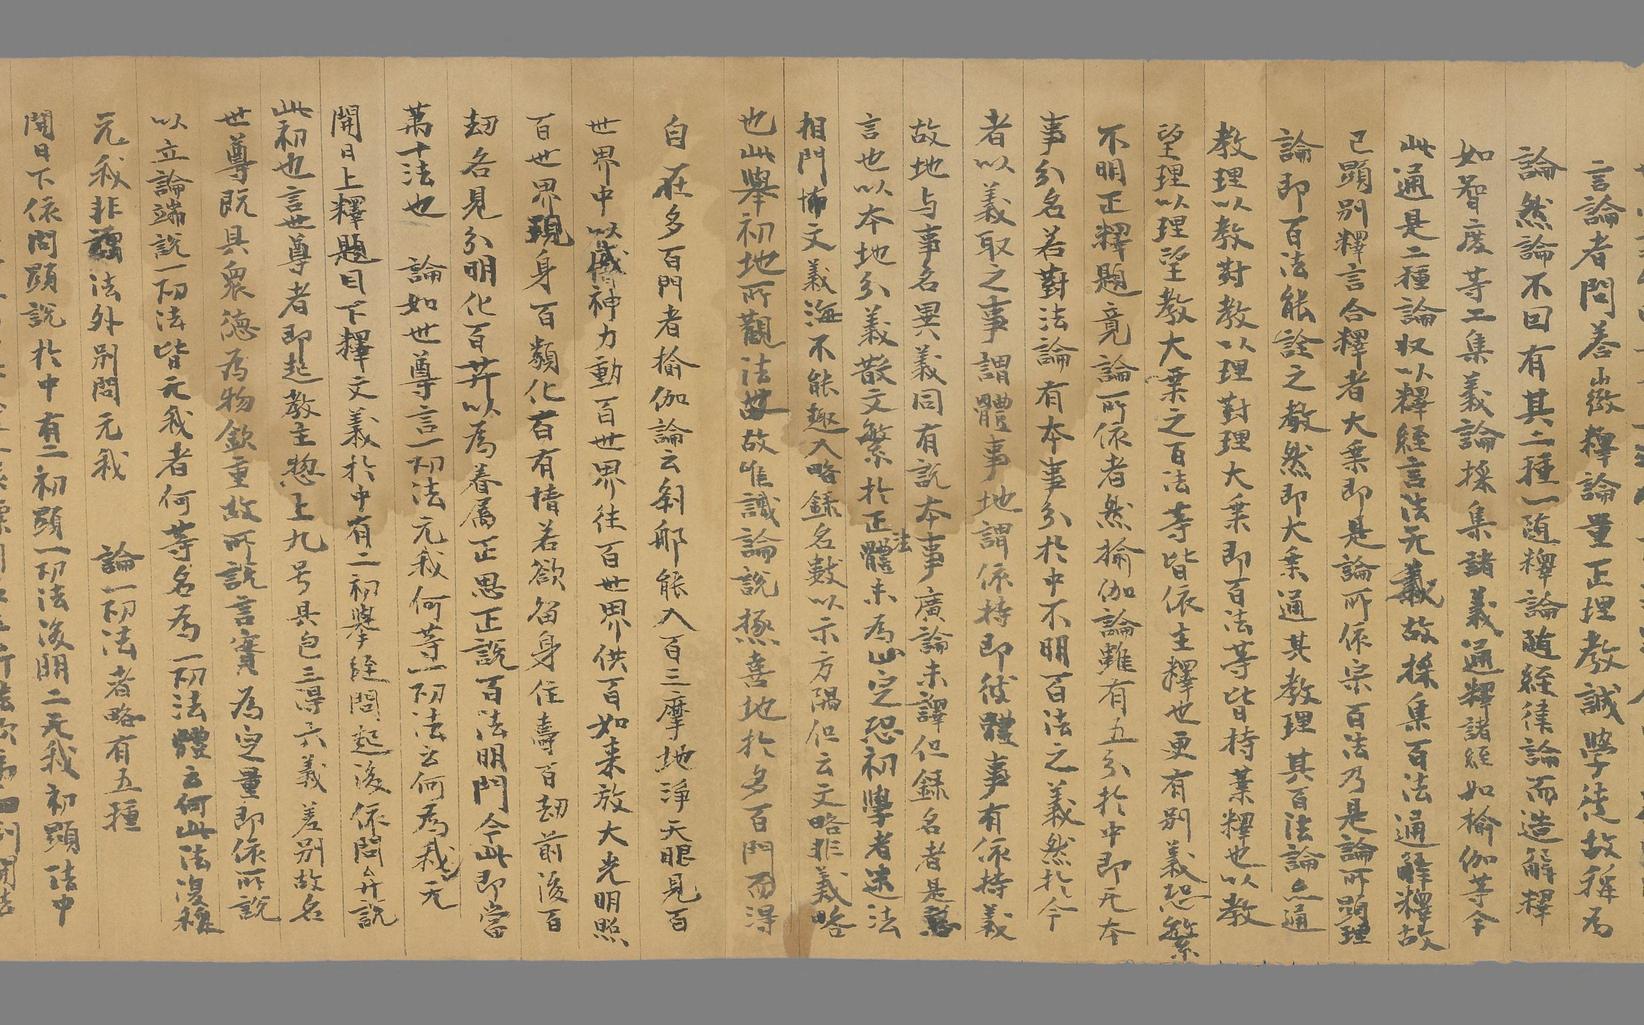 言論者問荅徵釋論量正理教誡學徒故稱為
論然論不同有其二種一随釋論随経律論而造解釋
如智度等二集義論採集諸義通釋諸経如揄伽等今
此通是二種論収以釋経言法无義故採集百法通解釋故
已顯別釋言合釋者大乗即是論所依宗百法乃是論所顯理
論即百法能詮之教然即大乗通其教理其百法論亦通
教理以教對教以理對理大乗即百法等皆持業釋也以教
望理以理望教大乗之百法等皆依主釋也更有別義恐繁
不明正釋題竟論所依者然揄伽論雖有五分扵中即无本
事分名若對法論有本事分扵中不明百法之義然扵今
者以義取之事謂體事地謂依持即彼體事有依持義
故地与事名異義同有說本事廣論未譯但録名者是
言也以本地分義散文繁扵正體法未為此定恐初學者迷法
相門怖文義海不能趣入略録名數以示方隅但云文略非義略
也此舉初地所觀法故故唯識論說極喜地扵多百門而得
自在多百門者揄伽論云剎那能入百三摩地淨天眼見百
世界中以威神力動百世界往百世界供百如来放大光明照
百世界現身百類化百有情若欲留身住壽百劫前後百
劫各見分明化百菩薩以為眷屬正思正說百法明門今此即當
萬十法也 論如世尊言一切法元我何等一切法云何為我无
開曰上釋題目下釋文義扵中有二初舉経問起後依問弁說
此初也言世尊者即起教主惣上九号具包三得六義差別故名
世尊既具衆德為物欽重故所說言實為定量即依所說
以立論端說一切法皆元我者何等名為一切法體云何此法復穪
元我非謂法外別問元我 論一切法者略有五種
開曰下依問顯說扵中有二初顯一切法後明二无我初顯法中